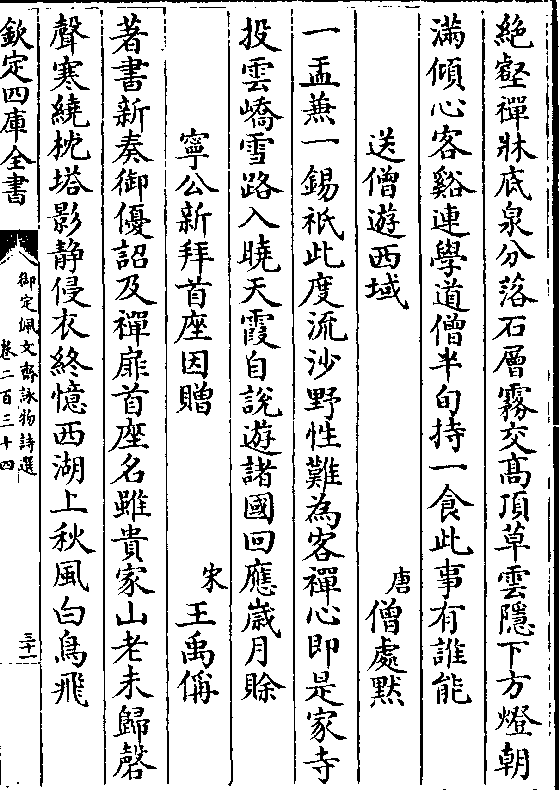 絶壑禪牀底泉分落石層霧交髙頂草雲隱下方燈朝
滿傾心客谿連學道僧半旬持一食此事有誰能
送僧遊西域　唐　僧處黙
一盂兼一錫祇此度流沙野性難為客禪心即是家寺
投雲嶠雪路入曉天霞自說遊諸國回應歲月賖
寧公新拜首座因贈　宋　王禹偁
著書新奏御優詔及禪扉首座名雖貴家山老未歸磬
聲寒繞枕塔影静侵衣終憶西湖上秋風白鳥飛
欽定四庫全書
御定佩文齋詠物詩選
卷二百三十四
三十一